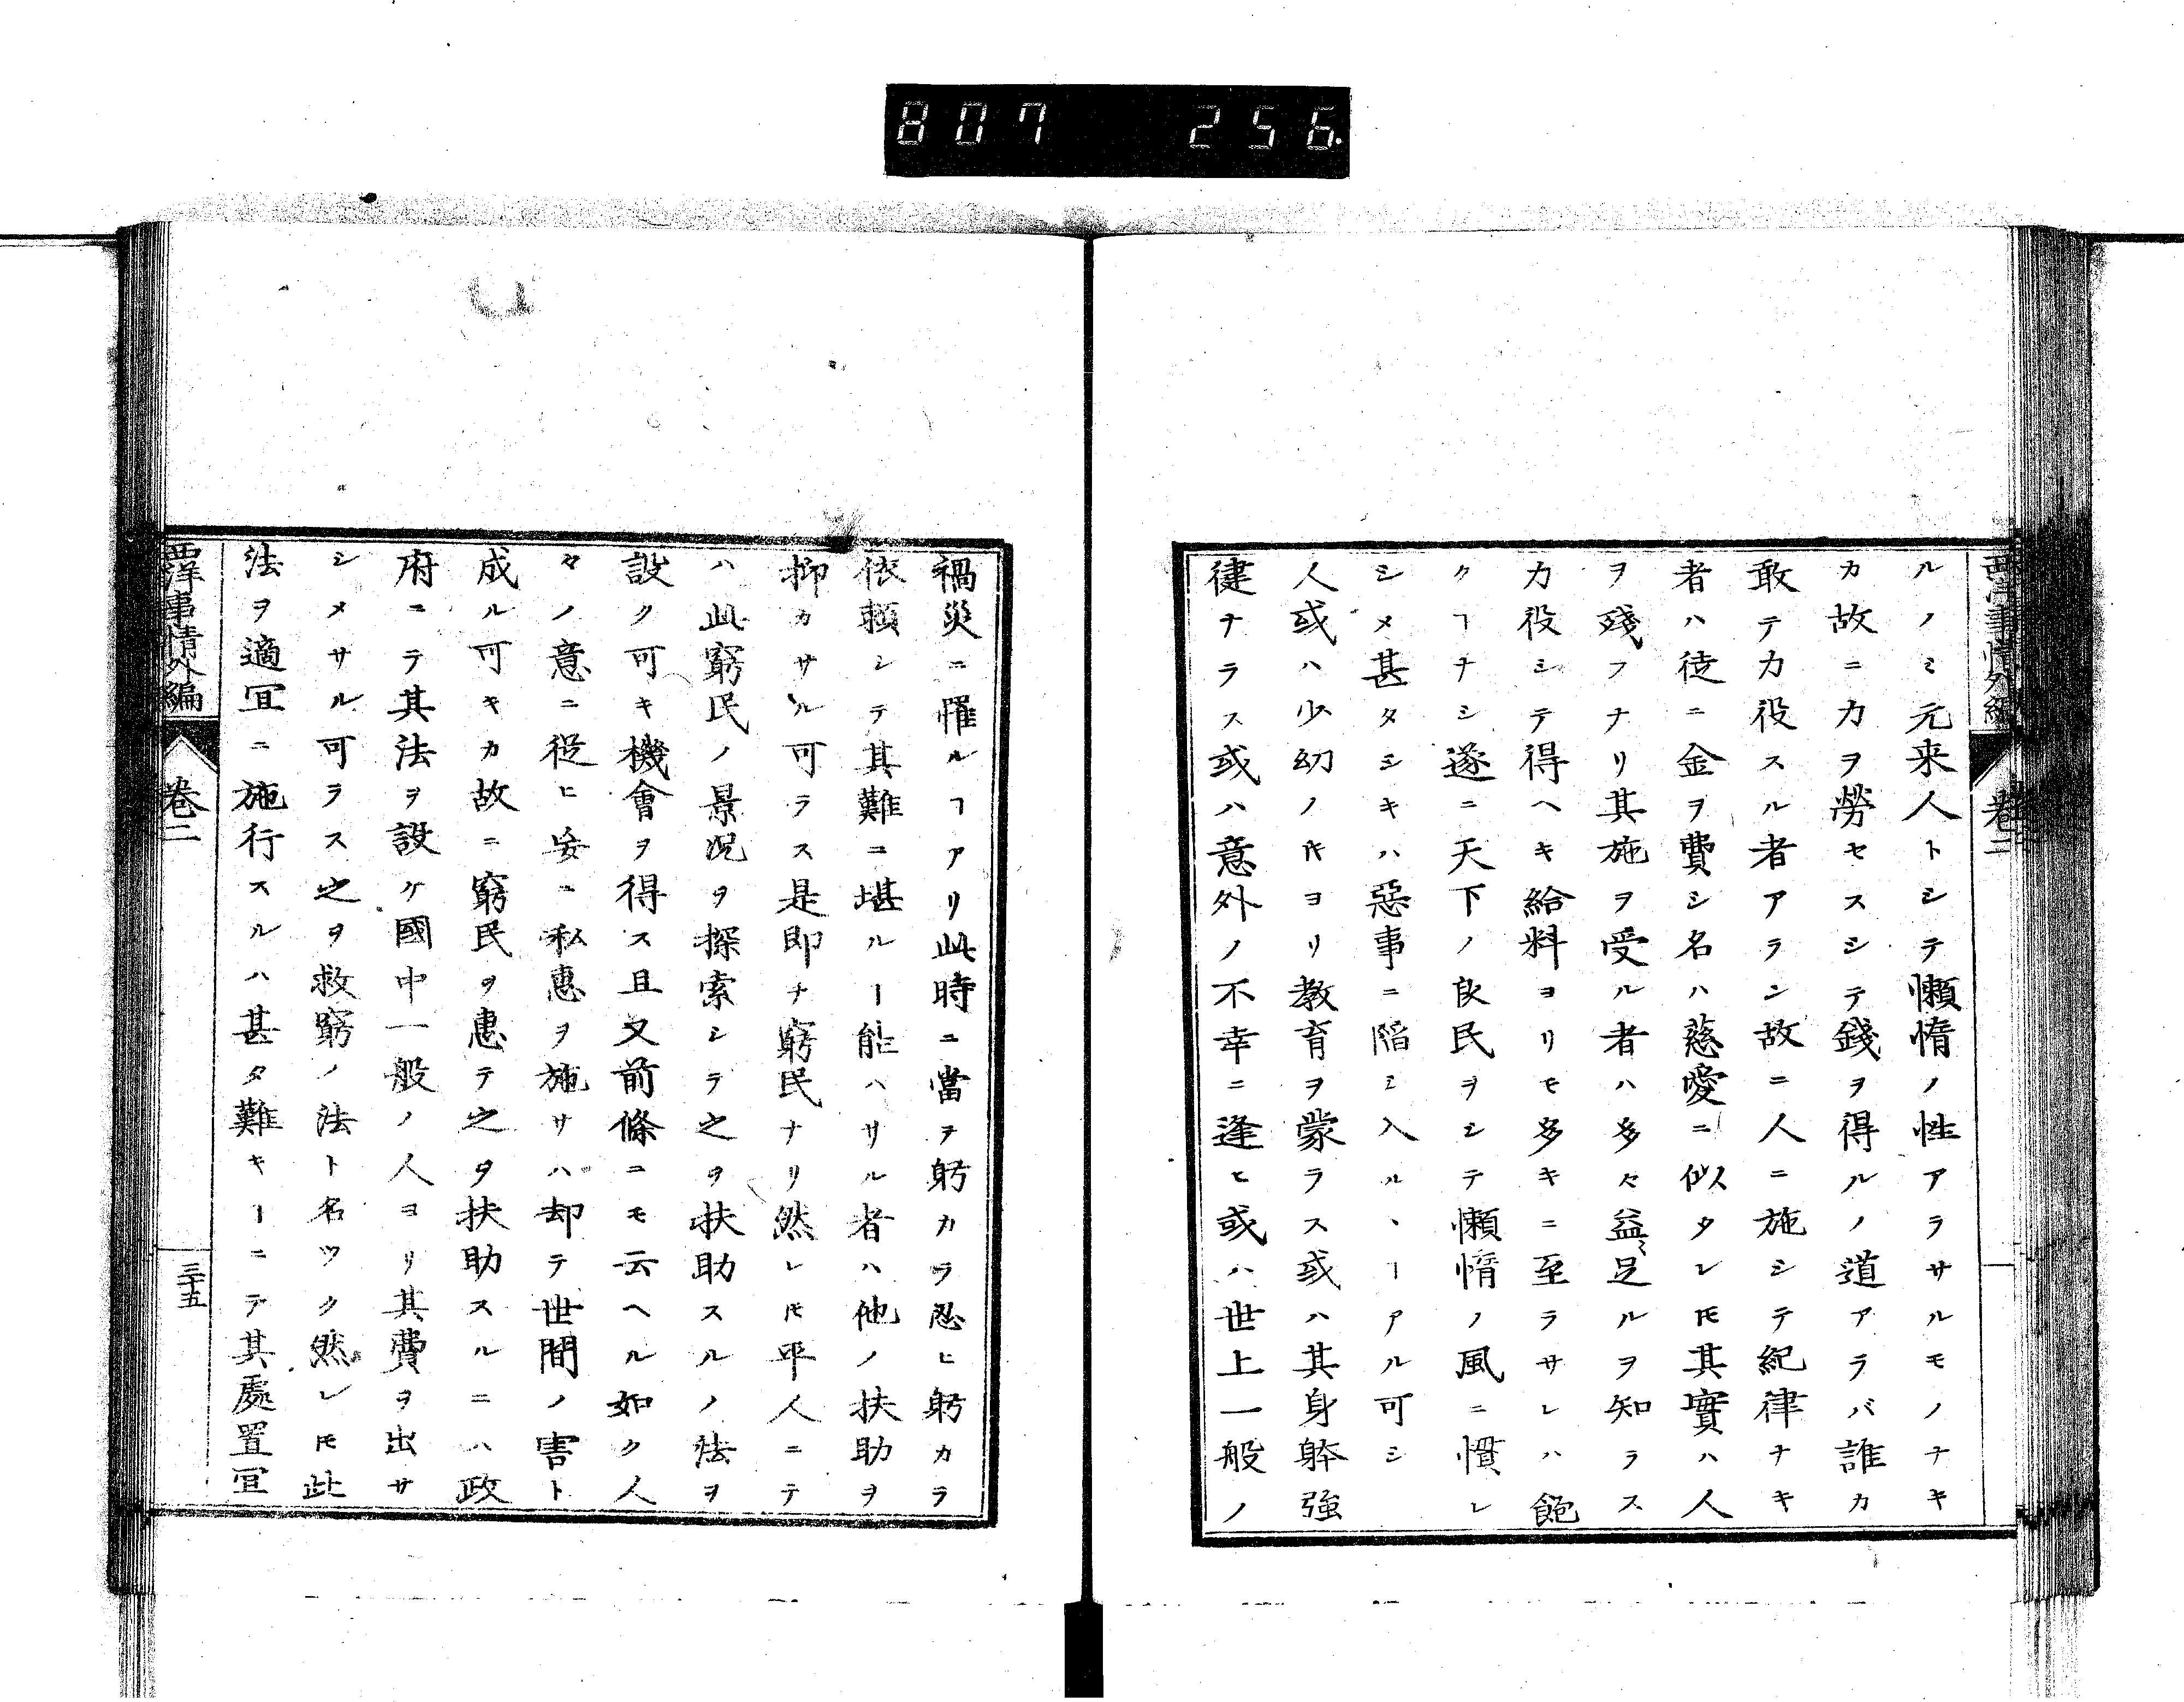 807 256.
西洋事情外編 卷二
ルノミ元来人トシテ懶惰ノ性アラサルモノナキ
カ故ニ力ヲ勞セスシテ錢ヲ得ルノ道アラバ誰カ
敢テ力役スル者アラン故ニ人ニ施シテ紀律ナキ
者ハ徒ニ金ヲ費シ名ハ慈愛ニ似タレ𪜈其實ハ人
ヲ殘フナリ其施ヲ受ル者ハ多々益〻足ルヲ知ラス
力役シテ得ヘキ給料ヨリモ多キニ至ラサレハ飽
クヿナシ遂ニ天下ノ良民ヲシテ懶惰ノ風ニ慣レ
シメ甚タシキハ惡事ニ陷ミ入ルヽヿアル可シ
人或ハ少幼ノ𪜈ヨリ教育ヲ蒙ラス或ハ其身躰強
健ナラス或ハ意外ノ不幸ニ逢ヒ或ハ世上一般ノ
禍災ニ罹ルヿアリ此時ニ當テ躬カラ忍ヒ躬カラ
依賴シテ其難ニ堪ルヿ能ハサル者ハ他ノ扶助ヲ
抑カサル可ラス是即チ窮民ナリ然レ𪜈平人ニテ
ハ此窮民ノ景况ヲ探索シテ之ヲ扶助スルノ法ヲ
設ク可キ機會ヲ得ス且又前條ニモ云ヘル如ク人
々ノ意ニ從ヒ妄ニ私惠ヲ施サハ却テ世間ノ害ト
成ル可キカ故ニ窮民ヲ惠テ之ヲ扶助スルニハ政
府ニテ其法ヲ設ケ國中一般ノ人ヨリ其費ヲ出サ
シメサル可ラス之ヲ救窮ノ法ト名ツク然レ𪜈此
法ヲ適宜ニ施行スルハ甚タ難キヿニテ其處置宜
西洋事情外編 卷二 三十五